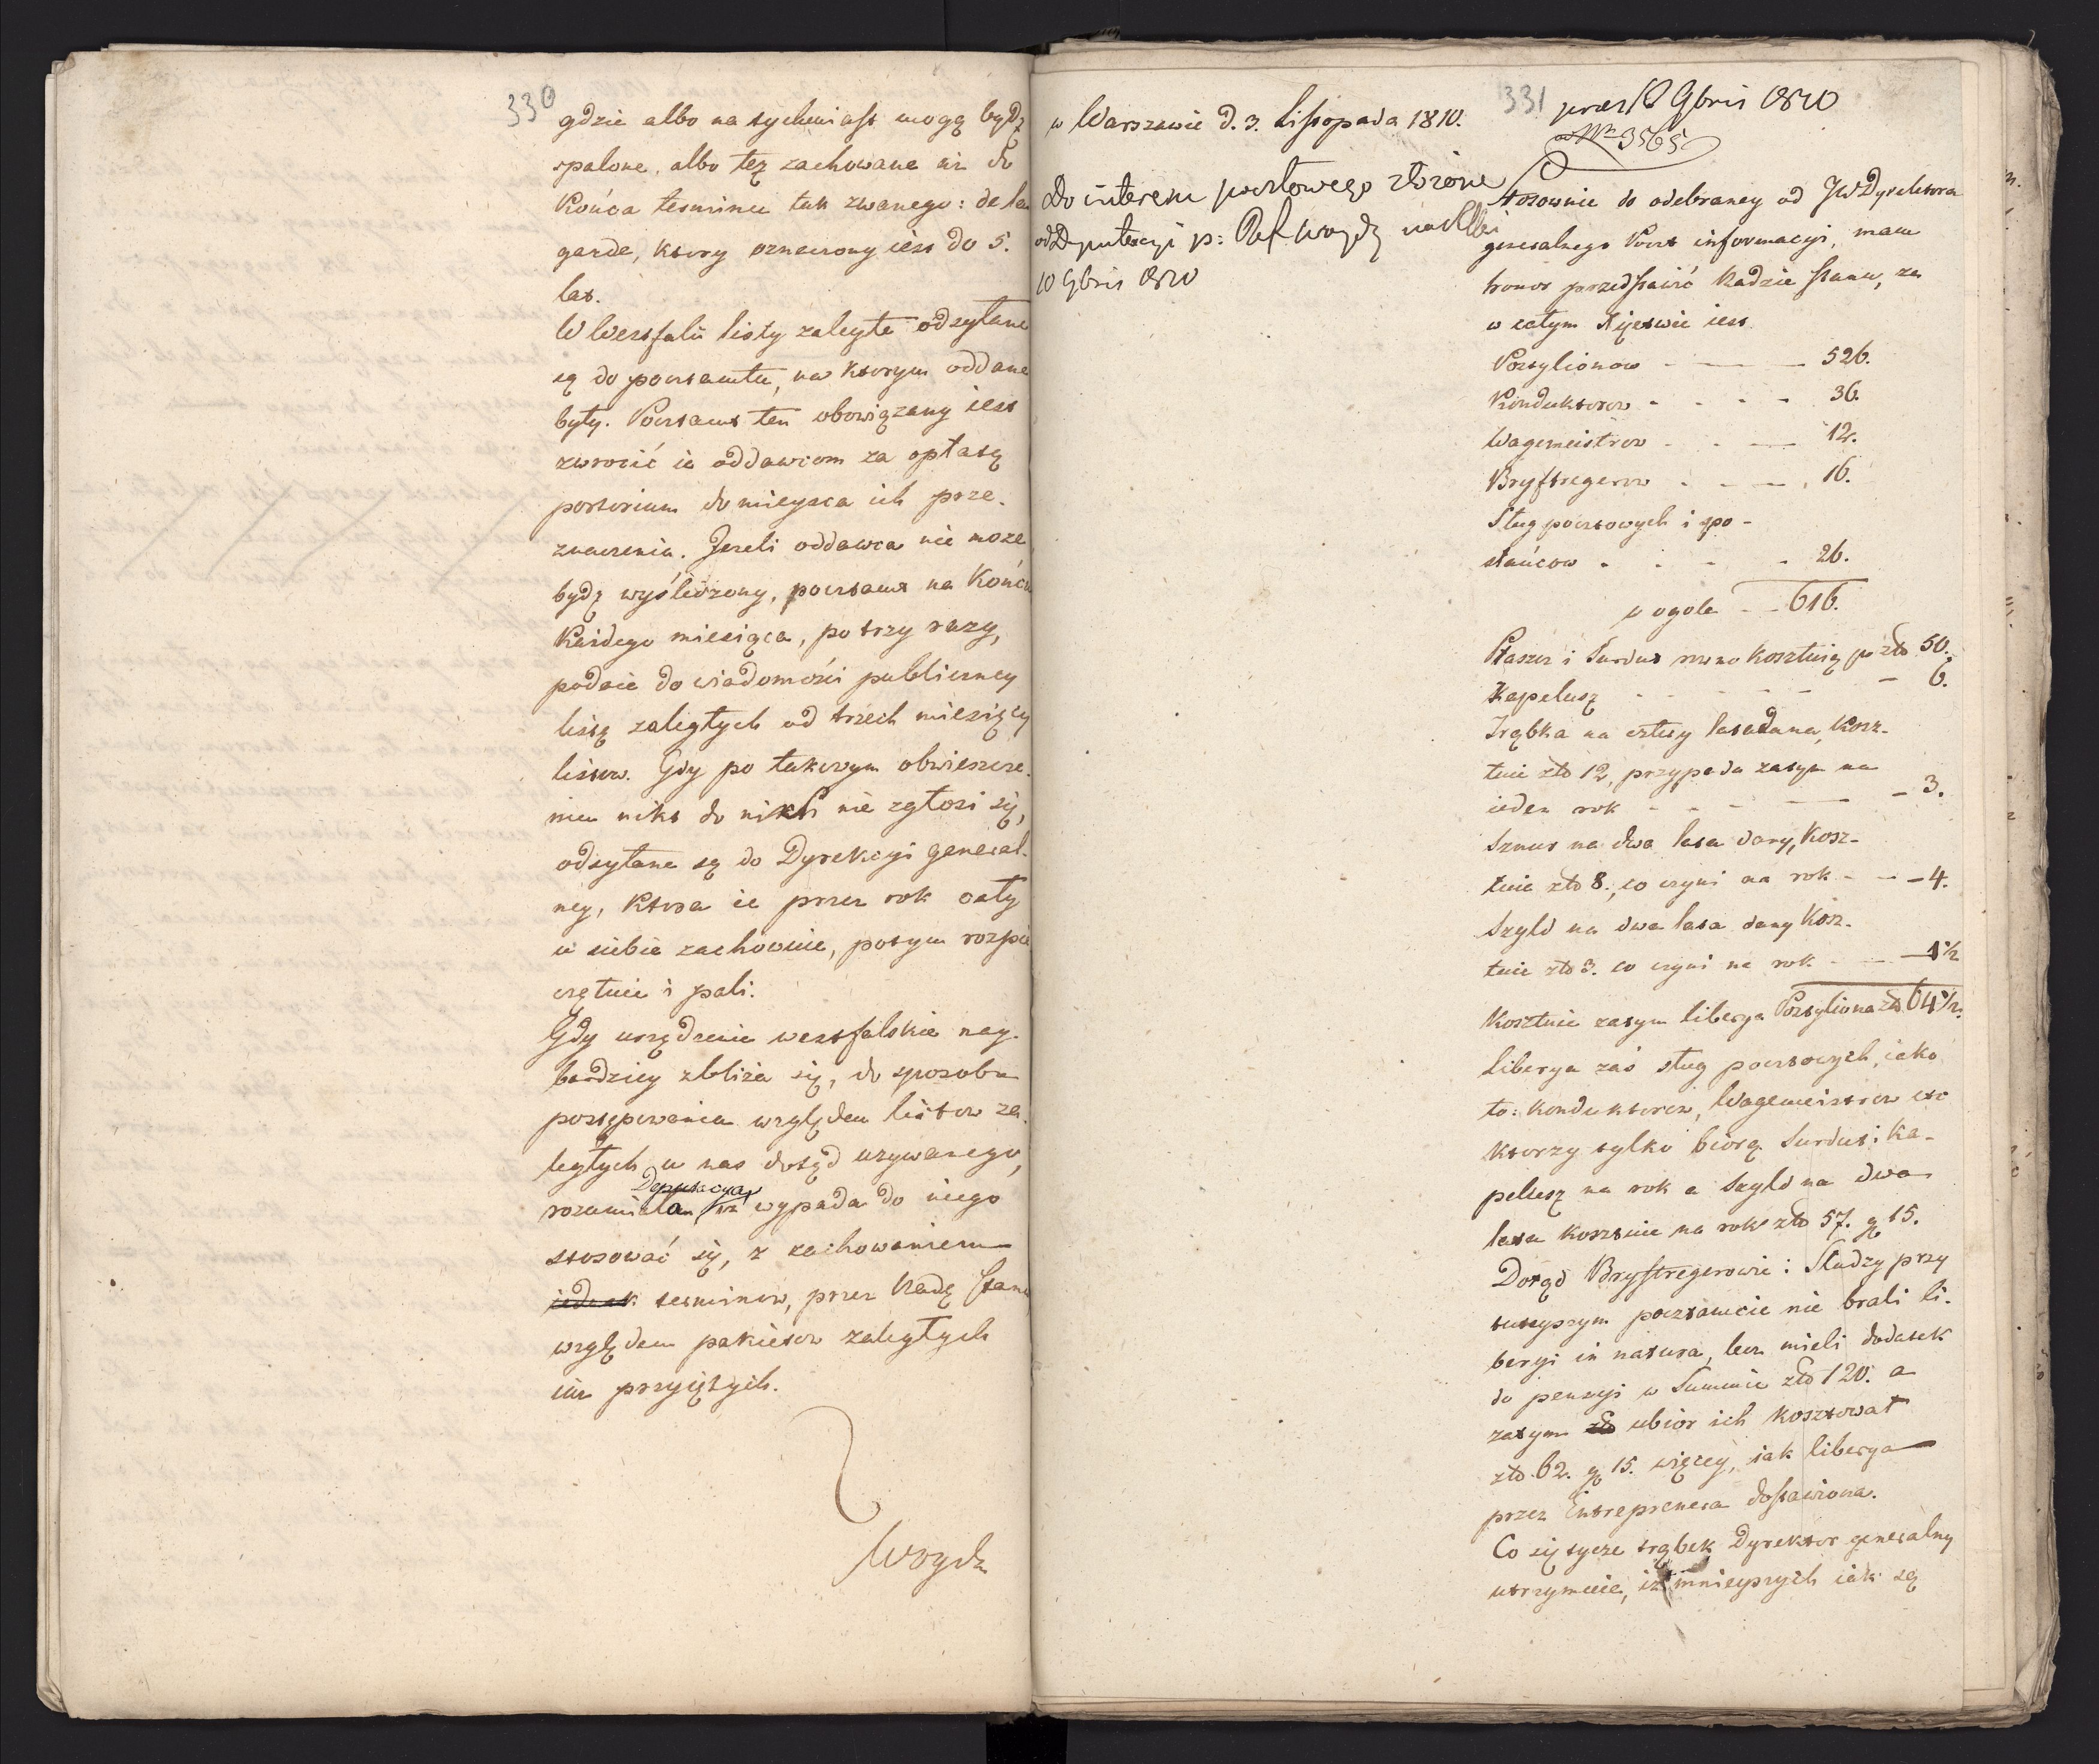 330
gdzie albo natychmiast mogą bydź
spalone, albo też zachowane są do
końca terminu tak zwanego: de la
garde, ktory oznaczony iest do 5.
lat.
W Westfalii listy zaległe odsyłane
są do pocztamtu, na ktorym oddane
były. Pocztamt ten obowiązany iest
zwrocić ie oddawcom za opłatą
portorium do mieysca ich prze-
znaczenia. Jeżeli oddawca nie może
bydź wyśledzony, pocztamt na końcu
każdego miesiąca, po trzy razy,
podaie do wiadomości publiczney
listę zaległych od trzech miesięcy
listow. Gdy po takowym obwieszcze-
niu nikt do nich nie zgłosi się,
odsyłane są do Dyrekcyi general-
ney, ktora ie przez rok cały
u siebie zachowuie, potym rozpie
czętuie i pali.
Gdy urządzenie westfalskie nay-
bardziey zbliża się, do sposobu
postępowania względem listow za-
ległych u nas dotąd używanego,
Deputacya
rozumiała iż wypada do niego
stosować się, z zachowaniem
iednak terminow, przez Radę Stanu
względem pakietow zaległych
iuż przyiętych.
Woyda
w Warszawie d. 3. Listopada 1810.
331
praes 9bris 1810
ad Nr 3565
do interesu pocztowego złożone
od Deputacyi p: Ref. Woydę
10 9bris 1810
Stosownie do odebraney od JW Dyrektora
generalnego Poczt informacyi, mam
honor przedstawić Radzie Stanu, że
w całym Xięstwie iest
Postylionow - - 526.
Konduktorow - - - - 36.
Wagemeistrow - - - 12.
Bryftregerow - - - 16.
Sług pocztowych i po-
słańcow - - - - 26.
w ogole - - 616.
Płaszcz i Surdut rocznie kosztuią po złł 50.
Kapelusz - - - - - 6.
Trąbka na cztery lata dana, kosz-
tuie złł 12, przypada zatym na
ieden rok - - - - - 3.
Sznur na dwa lata dany, kosz-
tuie złł 8. co czyni na rok - - - 4.
Szyld na dwa lata dany kosz-
tuie złł 3. co czyni na rok - - - 1 1/2
Kosztuie zatym liberya Postyliona złł 64 1/2.
Liberya zaś sług pocztowych, iako
to: Konduktorow, Wagemeistrow etc
ktorzy tylko biorą Surdut i Ka-
pelusz na rok a Szyld na dwa
lata kosztuie na rok złł 57. g 15.
Dotąd Bryftregerowie i Słudzy przy
tuteyszym pocztamcie nie brali li-
beryi in natura, lecz mieli dodatek
do pensyi w Summie złł 120. a
zatym złł ubiór ich kosztował
złł. 62. g 15. więcey, iak liberya
przez Entreprenera dostawiona.
Co się tycze trąbek Dyrektor generalny
utrzymuie, iż mnieyszych iak są